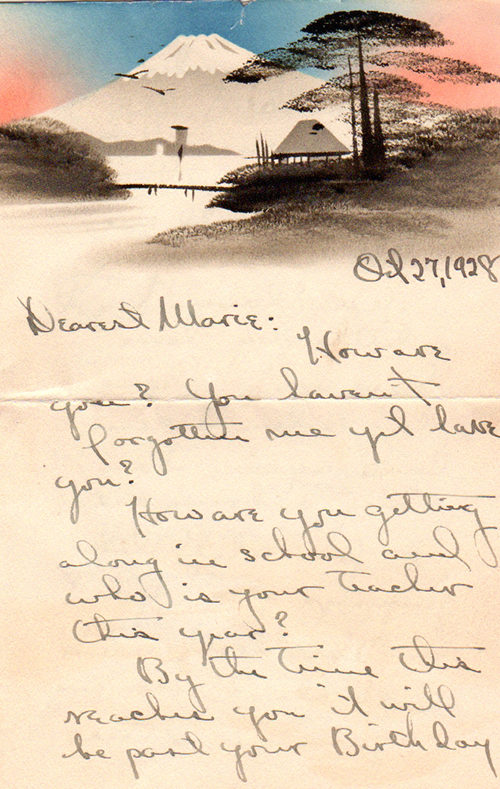 Oct 27, 1928
Dearest Marie:
How are
you? You haven't
forgotten me yet have
you?
How are you getting
along in school and
who is your teacher
this year?
By the time this
reaches you it will
be past your Birthday